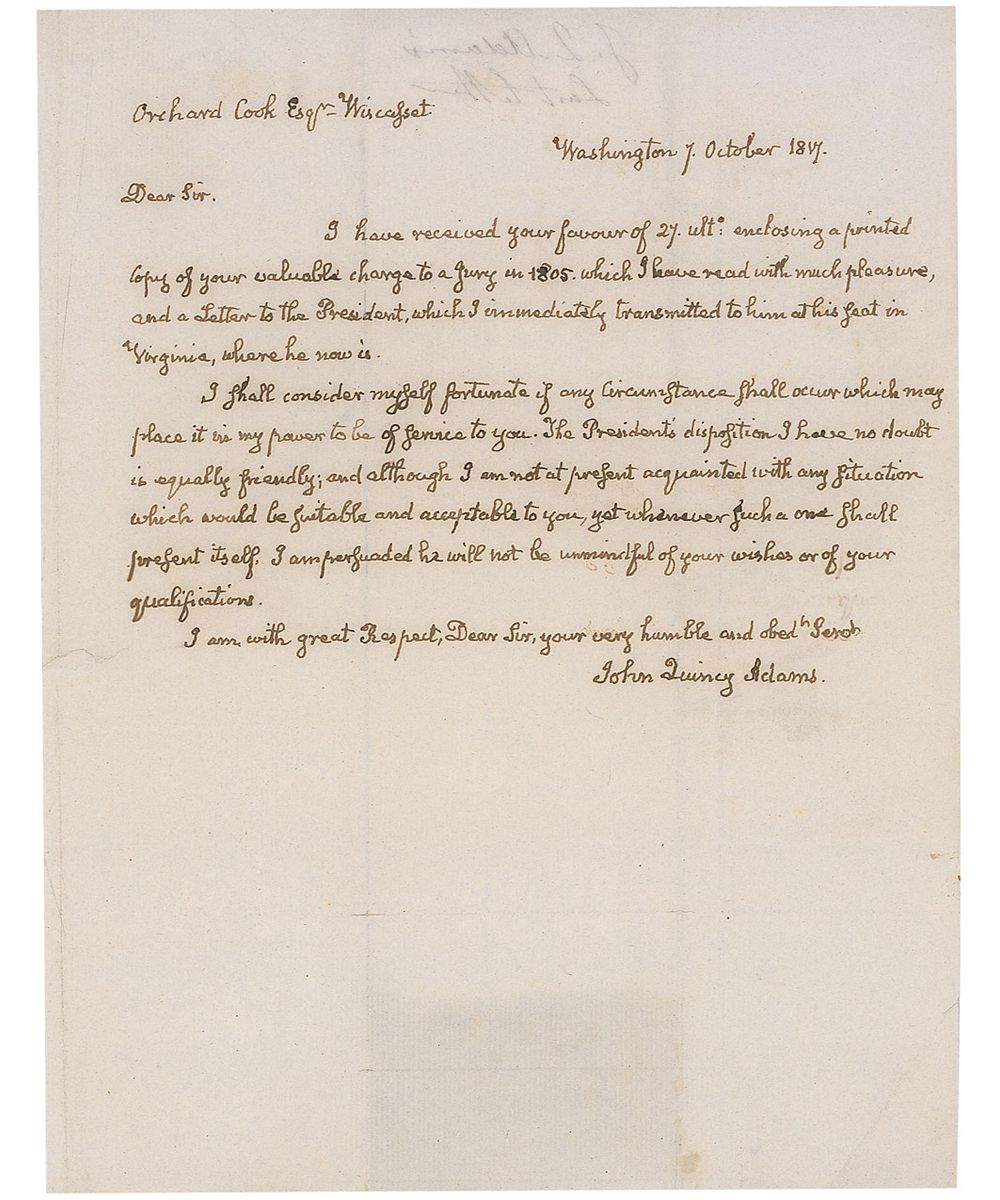 Orchard Cook Esqr- Wiscasset.
Washington 7. October 1817.
Dear Sir.
I have received your favour of 27. ulto: enclosing a printed
Copy of your valuable charge to a Jury in 1805. which I have read with much pleasure,
and a Letter to the President, which I immediately transmitted to him at his seat in
Virginia, where he now is.
I shall consider myself fortunate if any Circumstance shall occur which may
place it in my power to be of service to you. The President's disposition I have no doubt
is equally friendly; and although I am not at present acquainted with any situation
which would be suitable and acceptable to you, yet whenever such a one shall
present itself, I am persuaded he will not be unmindful of your wishes or of your
qualifications.
I am with great Respect, Dear Sir, your very humble and obedt Servt
John Quincy Adams.